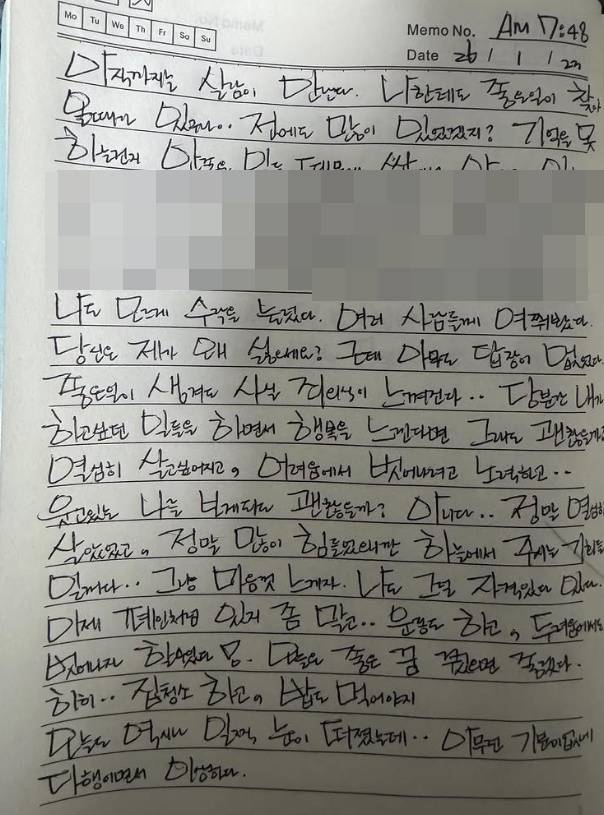 Mo Tu We Th Fr Sa Su
Memo No. AM 7:48
Date 26 / 1 / 22
아직까지는 실감이 안난다. 나한테도 좋은일이 찾아
올때가 있구나.. 전에도 많이 있었겠지? 기억을 못
하는건지 안좋은 일들
나도 모르게 수긍을 눌렀다. 여러 사람들께 여쭤봤다.
당신은 제가 왜 싫으세요? 근데 아무도 답장이 없었다.
좋은일이 생겨도 사실 죄의식이 느껴진다.. 당분간 내가
하고싶던 일들을 하면서 행복을 느낀다면 그래도 괜찮을까?
열심히 살고싶어지고, 어려움에서 벗어나려고 노력하고..
웃고있는 나를 보게되도 괜찮을까? 아니다.. 정말 열심히
살았었고, 정말 많이 힘들었으니깐 하늘에서 주시는 기회를
일거다.. 그냥 마음껏 느끼자. 나도 그럴 자격있다 있다.
이제 폐인처럼 있지 좀 말고.. 운동도 하고, 두려움에서도
벗어나자 화이팅 오늘은 좋은 꿈 꿨으면 좋겠다.
히히.. 집청소 하고, 밥도 먹어야지
오늘도 역시나 일찍 눈이 떠졌는데.. 아무런 기분이없음에
다행이면서 이상하다.